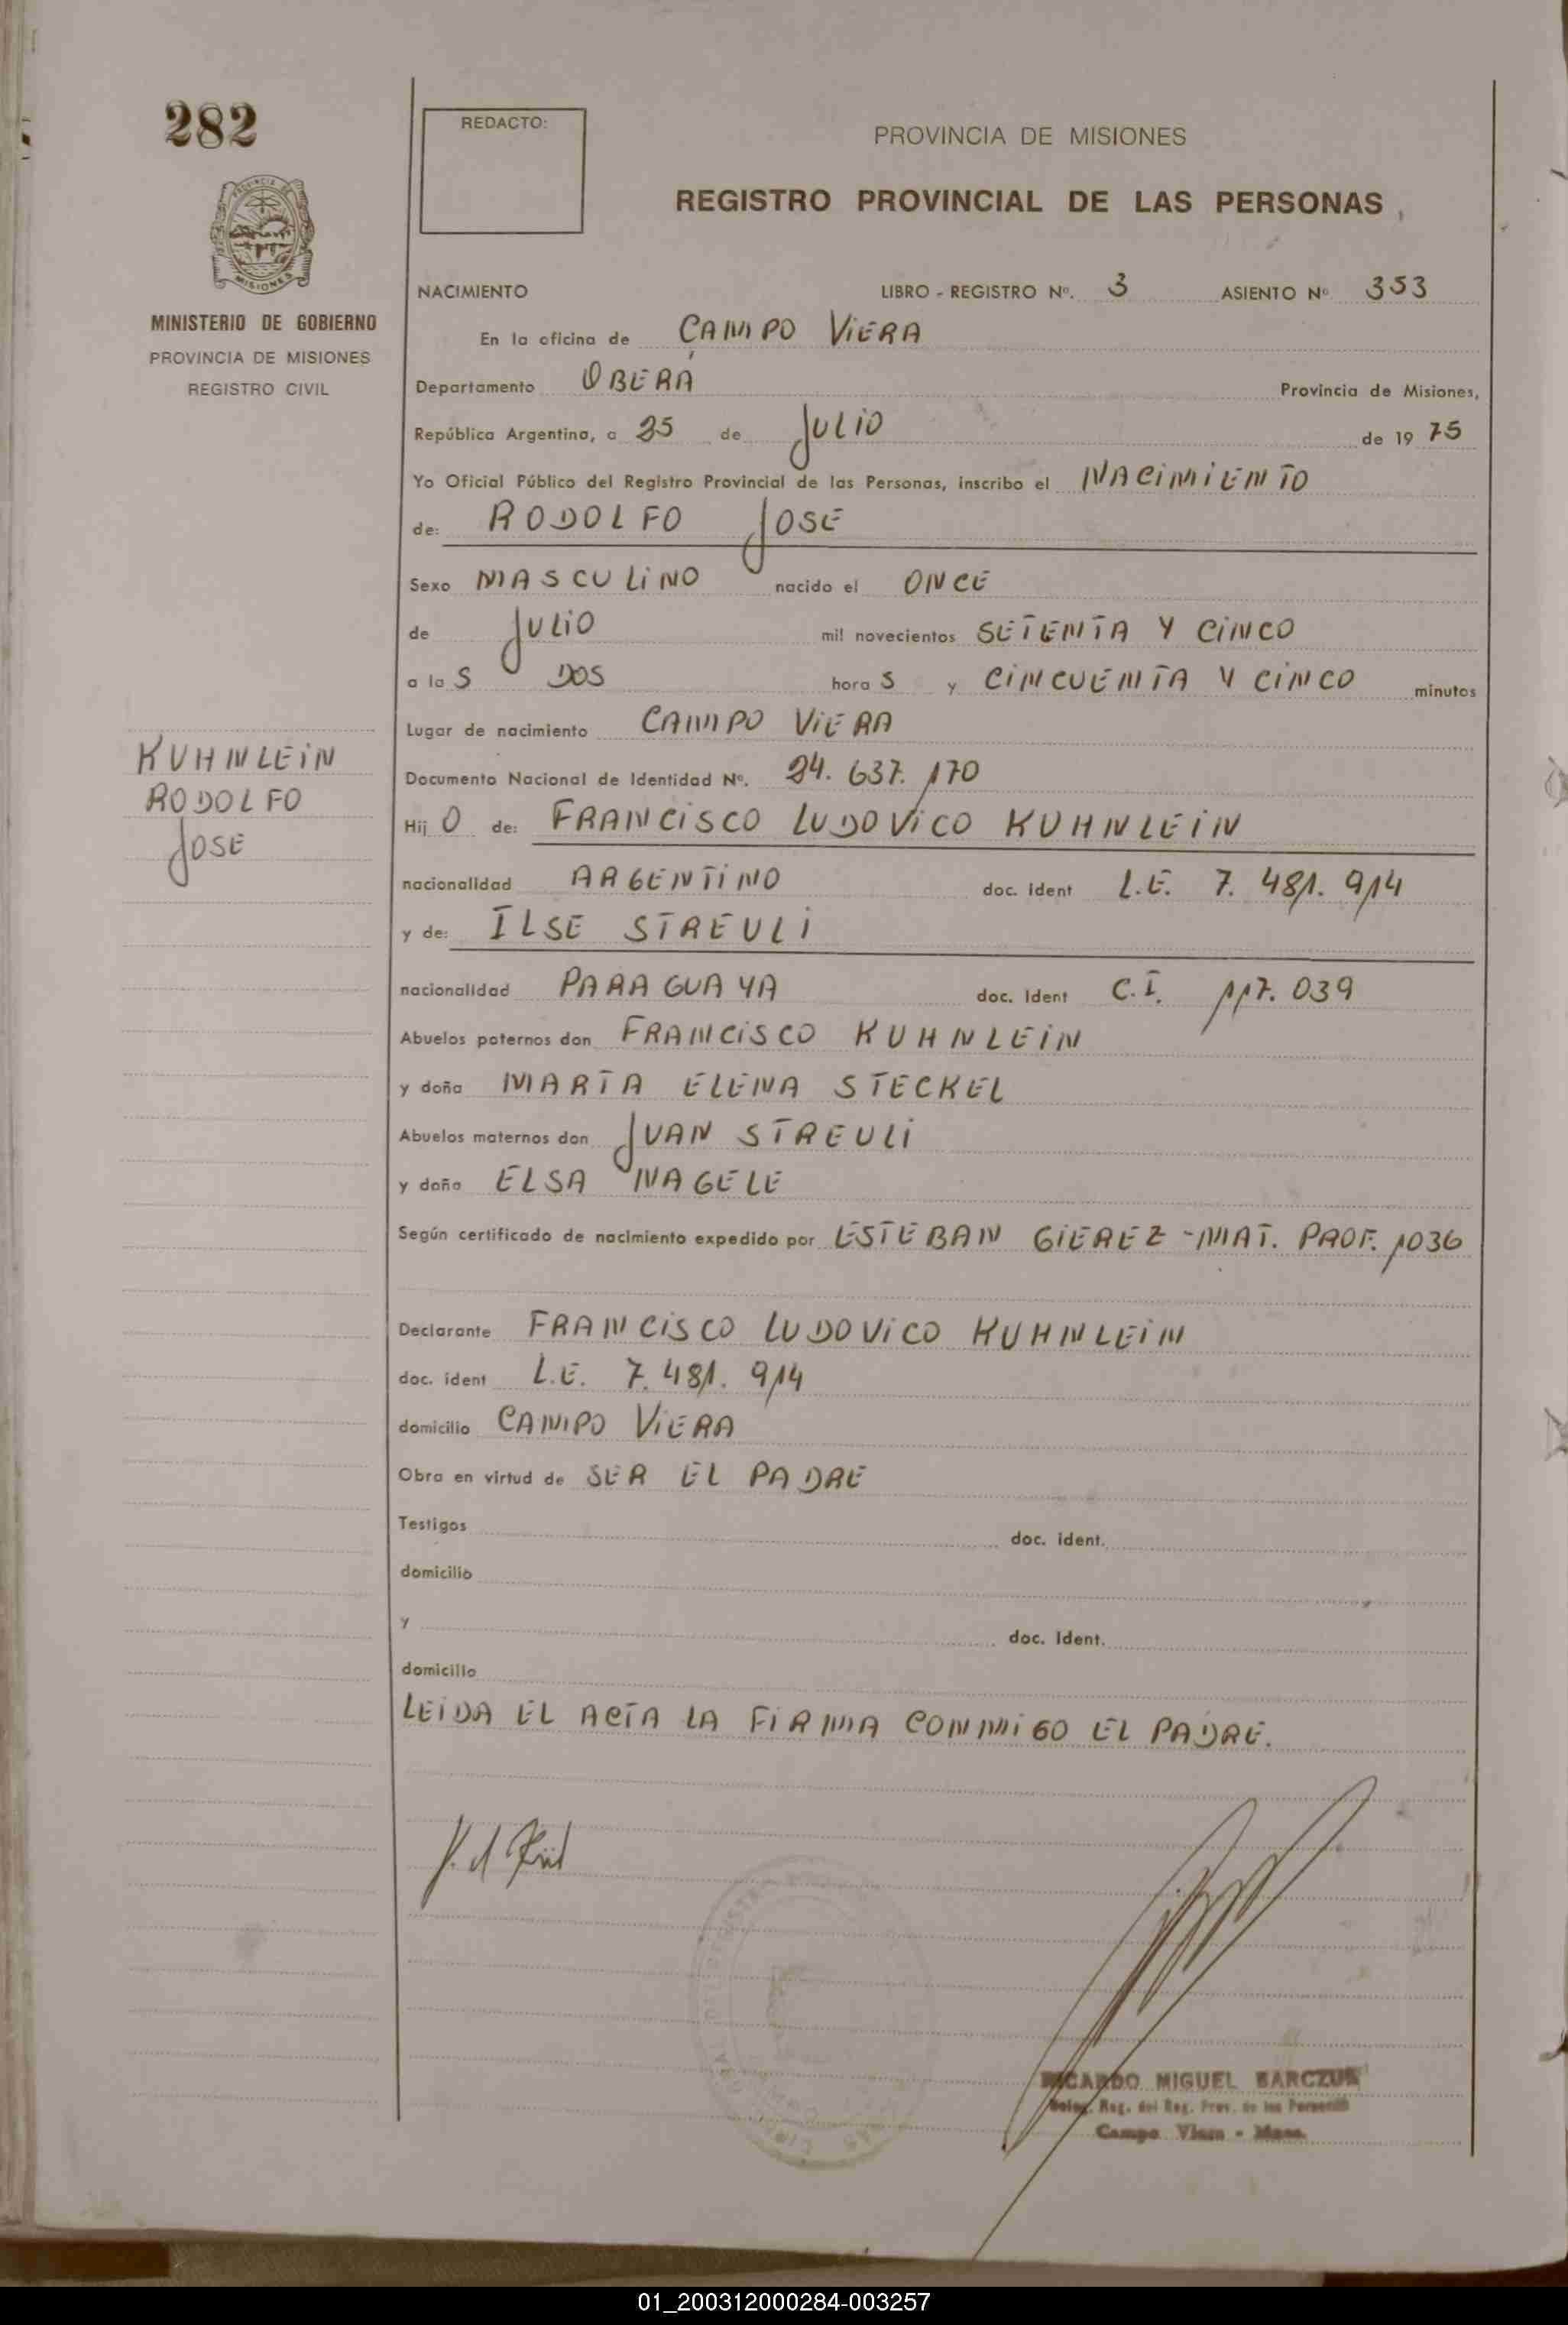 282
REDACTO:
PROVINCIA DE MISIONES
REGISTRO PROVINCIAL DE LAS PERSONAS
MISIONES
MINISTERIO DE GOBIERNO
PROVINCIA DE MISIONES
REGISTRO CIVIL
NACIMIENTO LIBRO - REGISTRO Nº. 3 ASIENTO Nº 353
En la oficina de CAMPO VIERA
Departamento OBERÁ Provincia de Misiones,
República Argentina, a 25 de JULIO de 19 75
Yo Oficial Público del Registro Provincial de las Personas, inscribo el NACIMIENTO
de: RODOLFO JOSE
Sexo MASCULINO nacido el ONCE
de JULIO mil novecientos SETENTA Y CINCO
a la S DOS hora S y CINCUENTA Y CINCO minutos
Lugar de nacimiento CAMPO VIERA
Documento Nacional de Identidad Nº. 24.637.170
Hij O de: FRANCISCO LUDOVICO KUHNLEIN
nacionalidad ARGENTINO doc. ident L.E. 7.481.914
y de: ILSE STREULI
nacionalidad PARAGUAYA doc. Ident C.I. 117.039
Abuelos paternos don FRANCISCO KUHNLEIN
y doña MARTA ELENA STECKEL
Abuelos maternos don JUAN STREULI
y doña ELSA NAGELE
Según certificado de nacimiento expedido por ESTEBAN GIEREZ - MAT. PROF. 1036
Declarante FRANCISCO LUDOVICO KUHNLEIN
doc. ident L.E. 7.481.914
domicilio CAMPO VIERA
Obra en virtud de SER EL PADRE
Testigos doc. ident.
domicilio
y doc. Ident.
domicilio
LEIDA EL ACTA LA FIRMA CONMIGO EL PADRE.
KUHNLEIN
RODOLFO
JOSE
RICARDO MIGUEL BARCZUK
Deleg. Reg. del Reg. Prov. de las Personas
Campo Viera - Mnes.
01_200312000284-003257